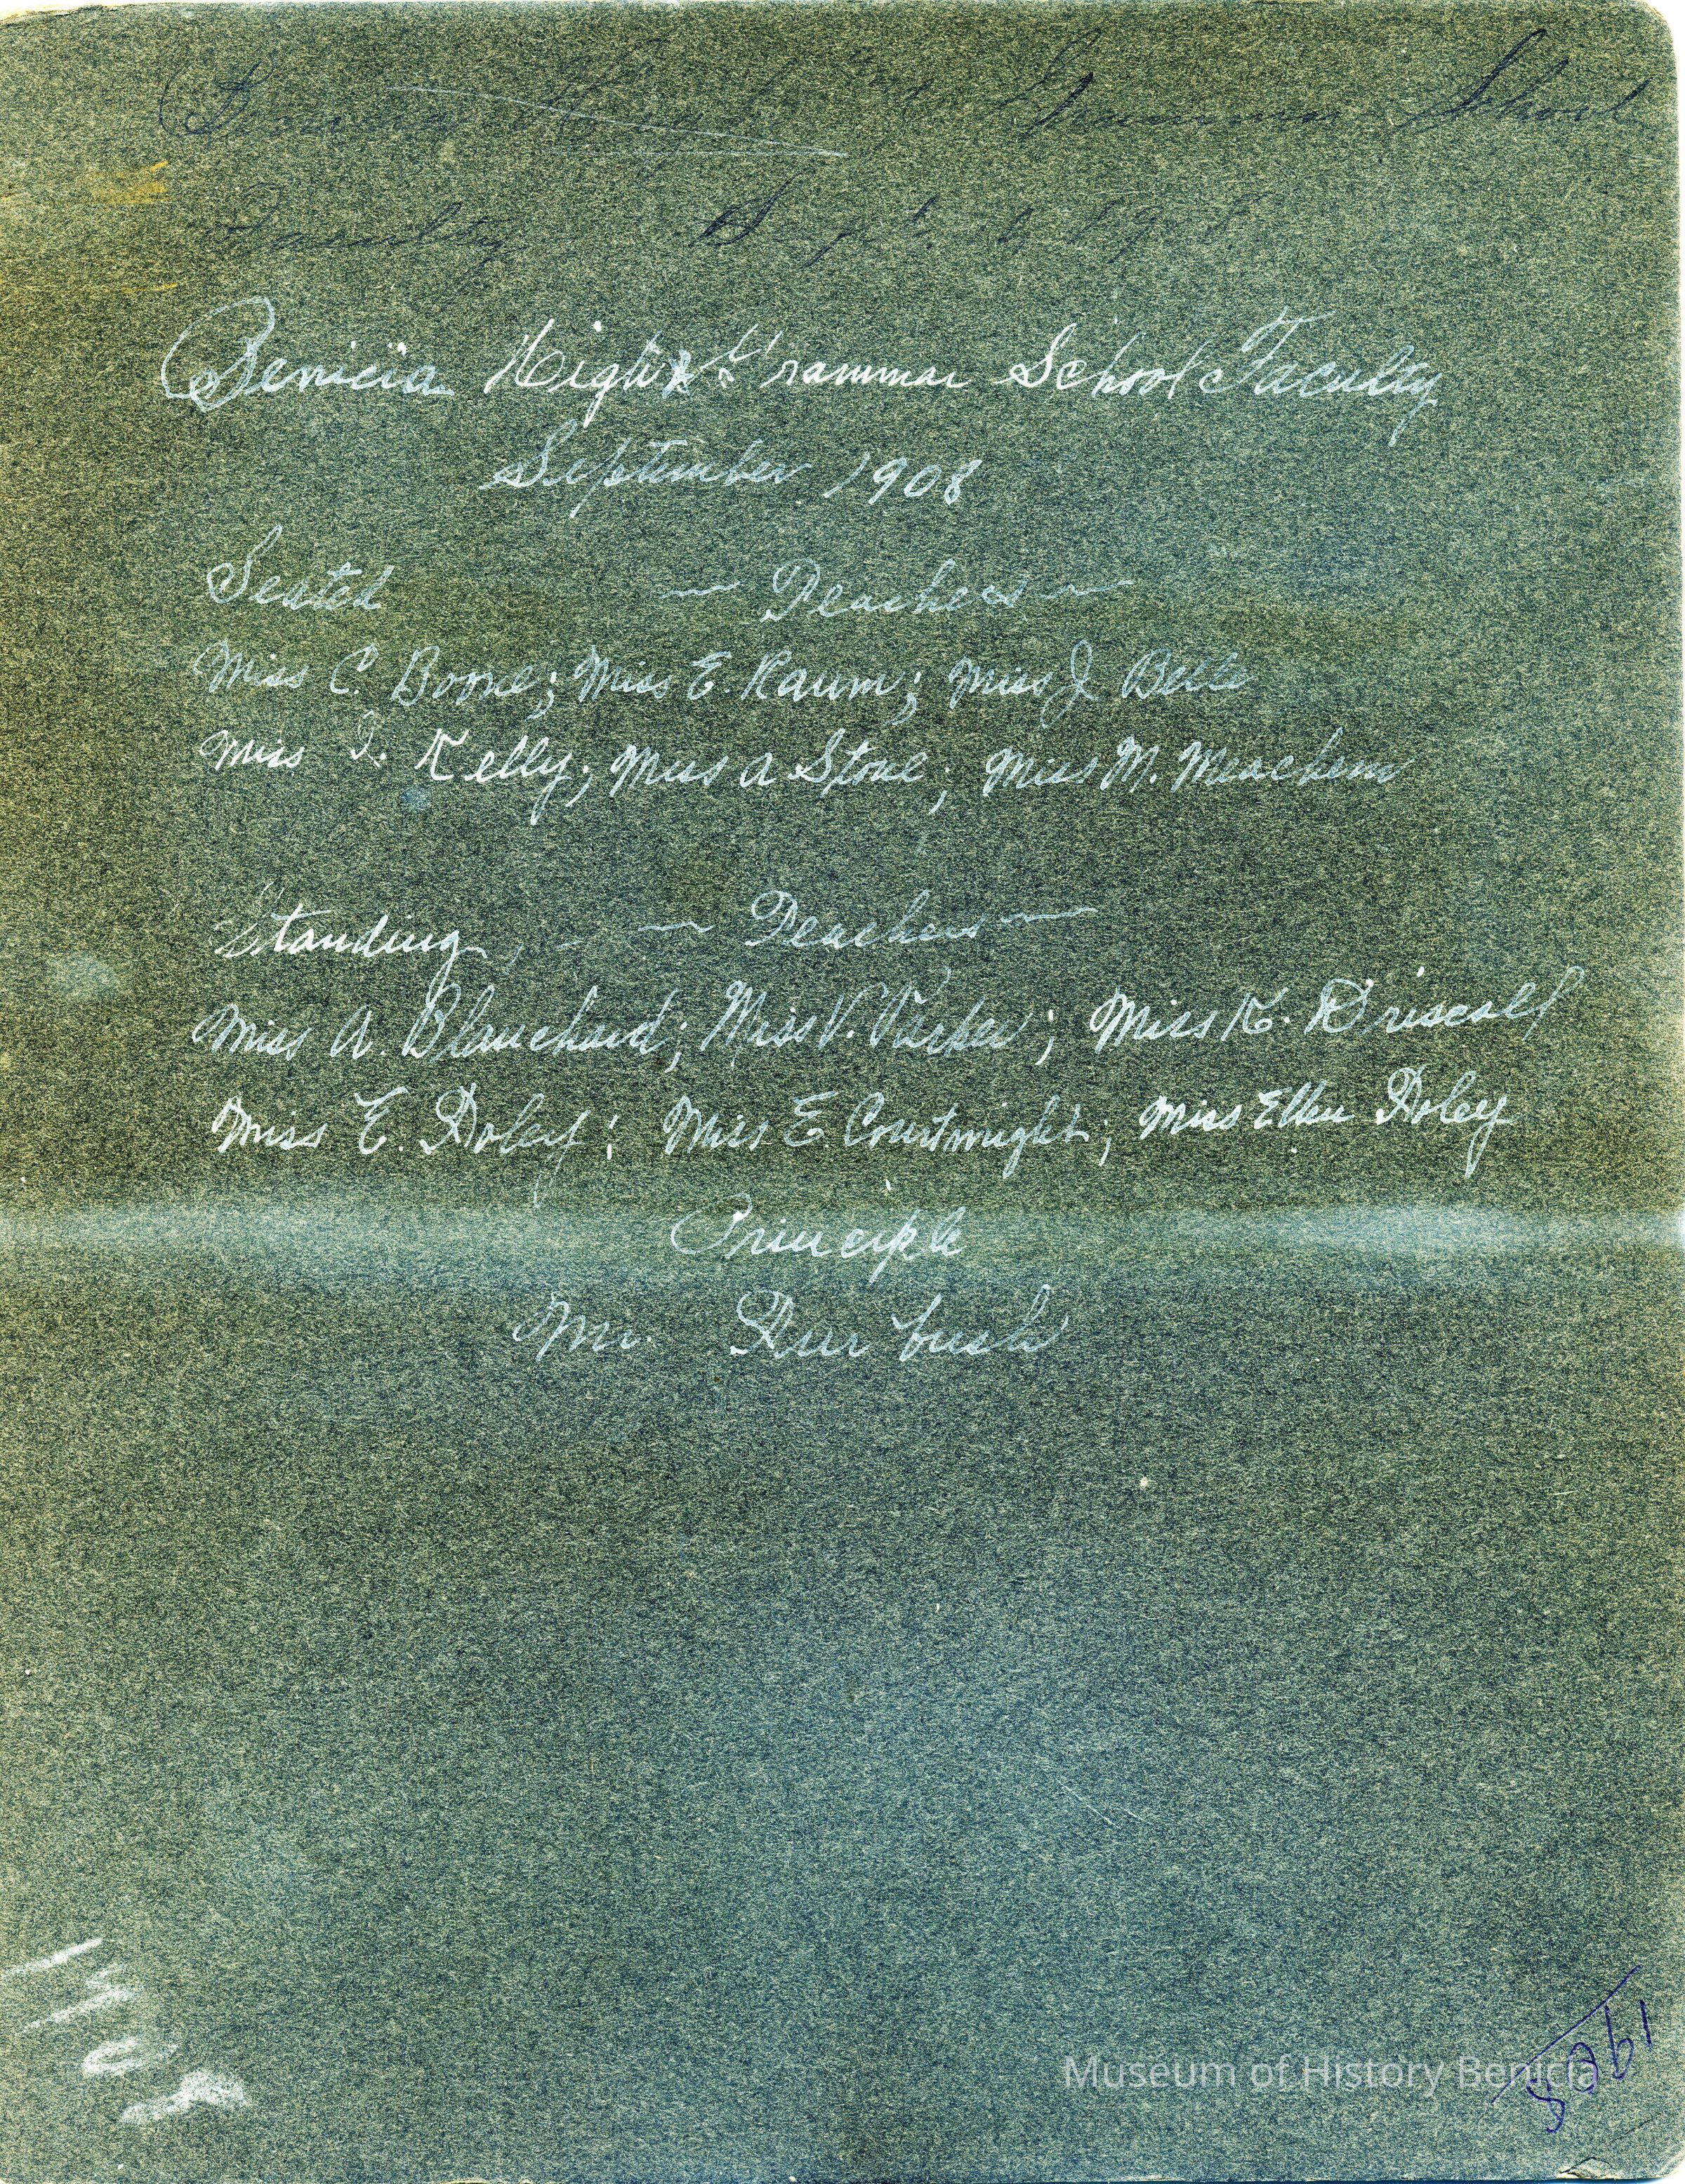 Benicia High Grammar School
Faculty Sept. 1908
Benicia High & Grammar School Faculty
September 1908
Seated ~ Teachers ~
Miss C. Boone; Miss E. Raum; Miss J Belle
Miss I. Kelly; Miss A Stone; Miss M. Meachem
Standing, - ~ Teachers ~
Miss A. Blanchard; Miss V. Parker; Miss K. Driscoll
Miss E. Doley; Miss E Courtwright; Miss Ellen Doley
Principle
Mr. Durbush
1908
1908
Museum of History Benicia